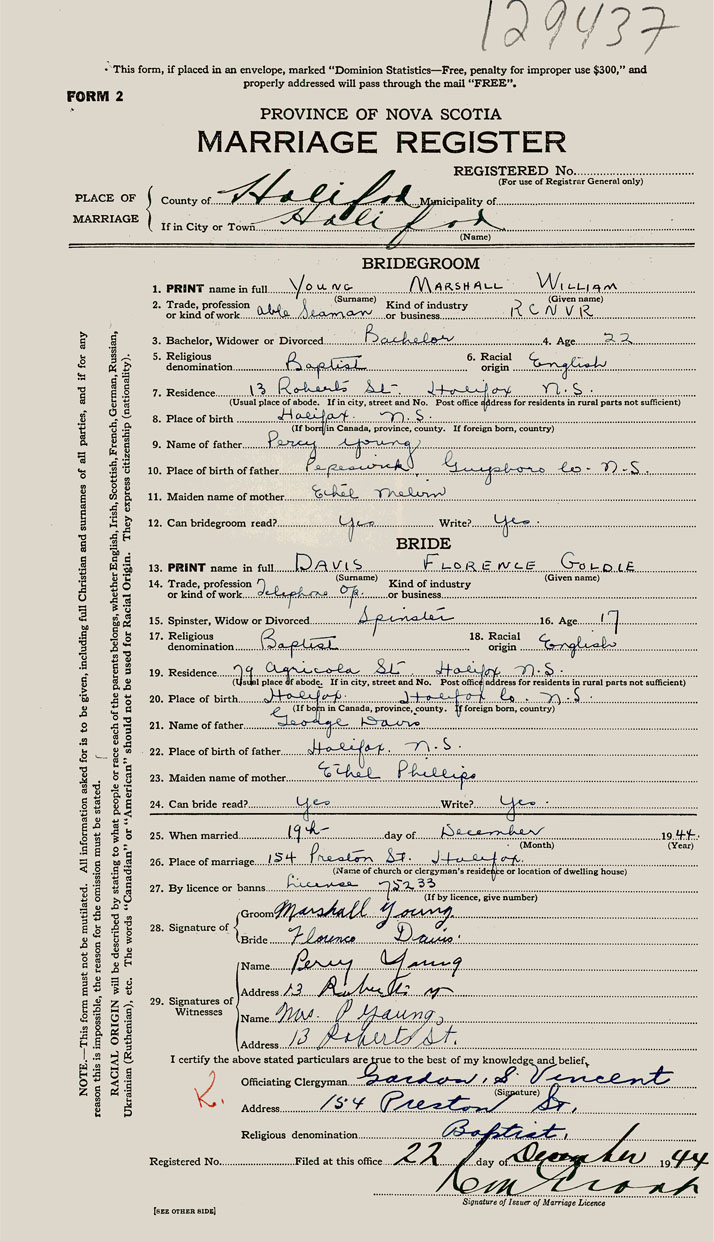 129437
This form, if placed in an envelope, marked “Dominion Statistics—Free, penalty for improper use $300,” and
properly addressed will pass through the mail “FREE”.
FORM 2
PROVINCE OF NOVA SCOTIA
MARRIAGE REGISTER
REGISTERED No.
(For use of Registrar General only)
PLACE OF MARRIAGE
County of Halifax Municipality of
If in City or Town Halifax
(Name)
BRIDEGROOM
1. PRINT name in full YOUNG MARSHALL WILLIAM
(Surname) (Given name)
2. Trade, profession or kind of work able Seaman Kind of industry or business R C N V R
3. Bachelor, Widower or Divorced Bachelor 4. Age 22
5. Religious denomination Baptist 6. Racial origin English
7. Residence 13 Roberts St. Halifax N.S.
(Usual place of abode. If in city, street and No. Post office address for residents in rural parts not sufficient)
8. Place of birth Halifax. N.S.
(If born in Canada, province, county. If foreign born, country)
9. Name of father Percy Young
10. Place of birth of father Pepeswick Guysboro Co. N.S.
11. Maiden name of mother Ethel Melvin
12. Can bridegroom read? Yes Write? Yes.
BRIDE
13. PRINT name in full DAVIS FLORENCE GOLDIE
(Surname) (Given name)
14. Trade, profession or kind of work Telephone Op. Kind of industry or business
15. Spinster, Widow or Divorced Spinster 16. Age 17
17. Religious denomination Baptist 18. Racial origin English
19. Residence 79 Agricola St. Halifax N.S.
(Usual place of abode. If in city, street and No. Post office address for residents in rural parts not sufficient)
20. Place of birth Halifax. Halifax Co. N.S.
(If born in Canada, province, county. If foreign born, country)
21. Name of father George Davis
22. Place of birth of father Halifax. N.S.
23. Maiden name of mother Ethel Phillips
24. Can bride read? Yes Write? Yes.
25. When married 19th day of December 1944.
(Month) (Year)
26. Place of marriage 154 Preston St. Halifax.
(Name of church or clergyman's residence or location of dwelling house)
27. By licence or banns License 75233
(If by licence, give number)
28. Signature of
Groom Marshall Young
Bride Florence Davis.
29. Signatures of Witnesses
Name Percy Young
Address 13 Roberts St
Name Mrs. P Young,
Address 13 Roberts St.
I certify the above stated particulars are true to the best of my knowledge and belief,
Officiating Clergyman Gordon. S. Vincent
(Signature)
K.
Address 154 Preston St.
Religious denomination Baptist.
Registered No. Filed at this office 22 day of December 1944
Signature of Issuer of Marriage Licence
[SEE OTHER SIDE]
NOTE.—This form must not be mutilated. All information asked for is to be given, including full Christian and surnames of all parties, and if for any
reason this is impossible, the reason for the omission must be stated.
RACIAL ORIGIN will be described by stating to what people or race each of the parents belongs, whether English, Irish, Scottish, French, German, Russian,
Ukrainian (Ruthenian), etc. The words “Canadian” or “American” should not be used for Racial Origin. They express citizenship (nationality).